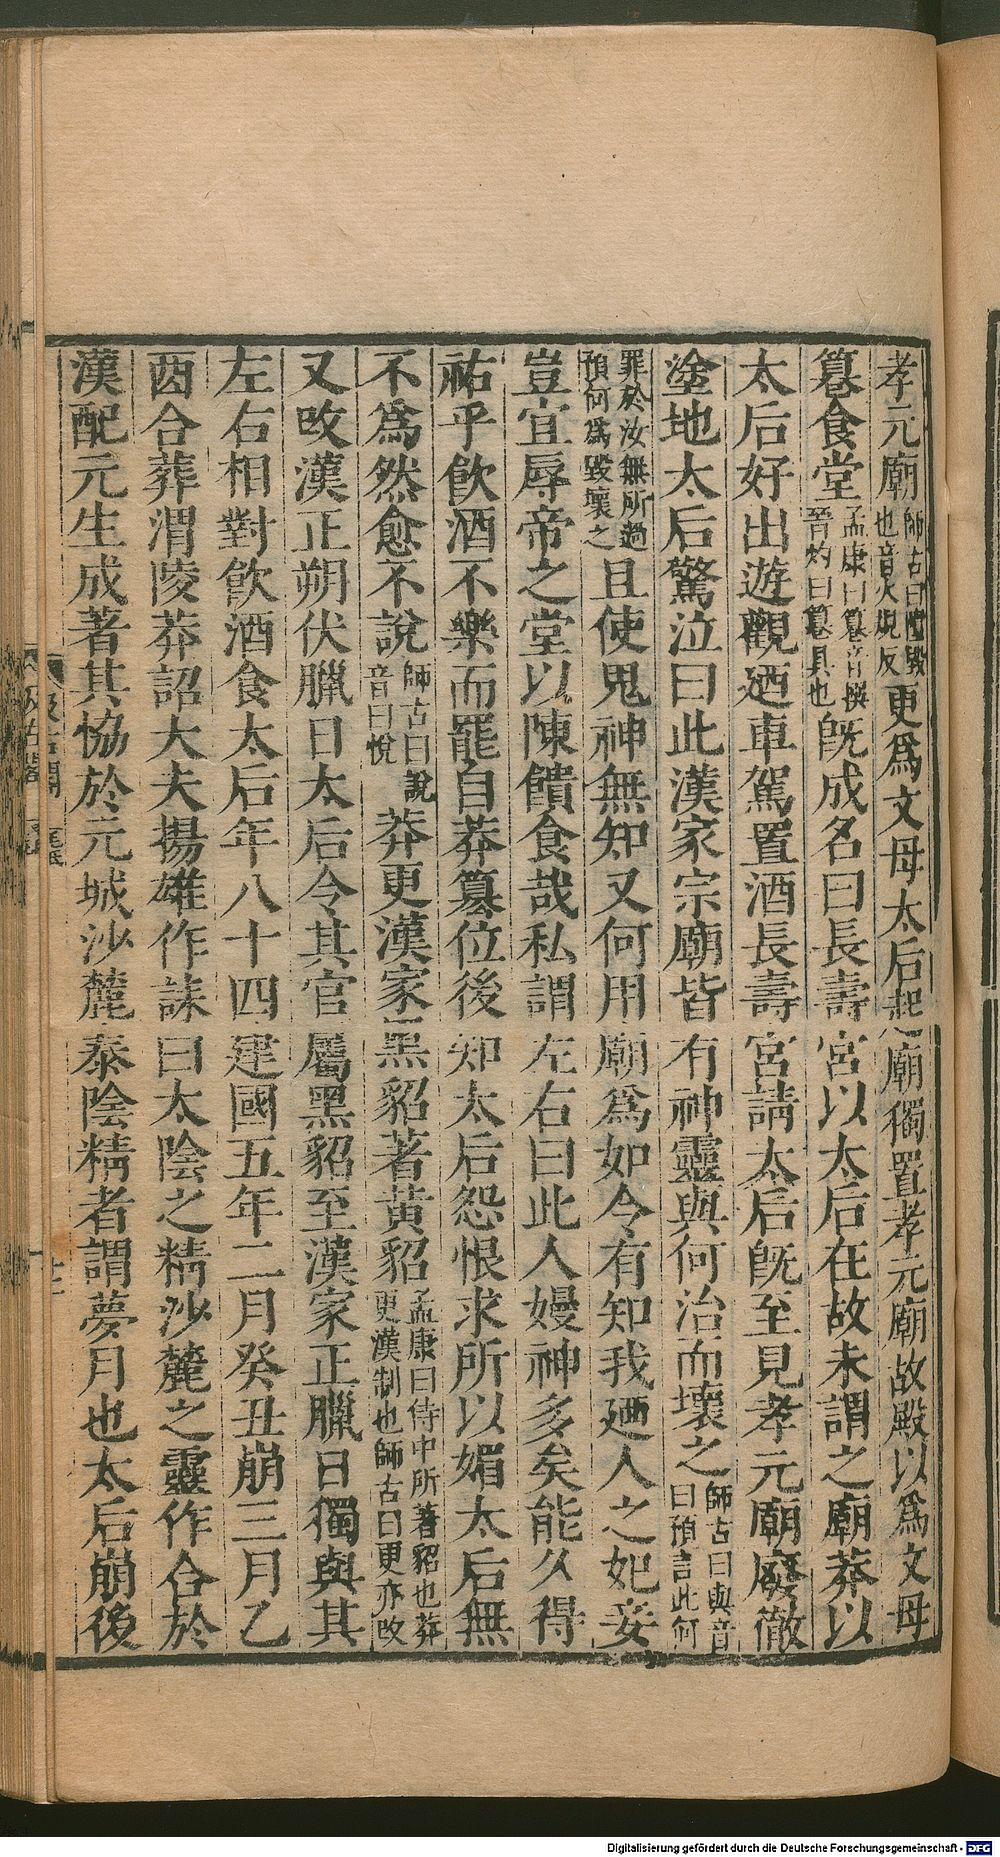 孝元廟師古曰隳毀也音火規反更爲文母太后起廟獨置孝元廟故殿以爲文母
篹食堂孟康曰篹音撰晉灼曰篹具也既成名曰長壽宮以太后在故未謂之廟莽以
太后好出遊觀廼車駕置酒長壽宮請太后既至見孝元廟廢徹
塗地太后驚泣曰此漢家宗廟皆有神靈與何治而壞之師古曰與音曰預言此何
罪於汝無所過預何爲毀壞之且使鬼神無知又何用廟爲如令有知我廼人之妃妾
豈宜辱帝之堂以陳饋食哉私謂左右曰此人嫚神多矣能久得
祐乎飲酒不樂而罷自莽篡位後知太后怨恨求所以媚太后無
不爲然愈不說師古曰說音曰悅莽更漢家黑貂著黃貂孟康曰侍中所著貂也莽更漢制也師古曰更亦改
又改漢正朔伏臘日太后令其官屬黑貂至漢家正臘日獨與其
左右相對飲酒食太后年八十四建國五年二月癸丑崩三月乙
酉合葬渭陵莽詔大夫揚雄作誄曰太陰之精沙麓之靈作合於
漢配元生成著其協於元城沙麓泰陰精者謂夢月也太后崩後
汲古閣
Digitalisierung gefördert durch die Deutsche Forschungsgemeinschaft - DFG